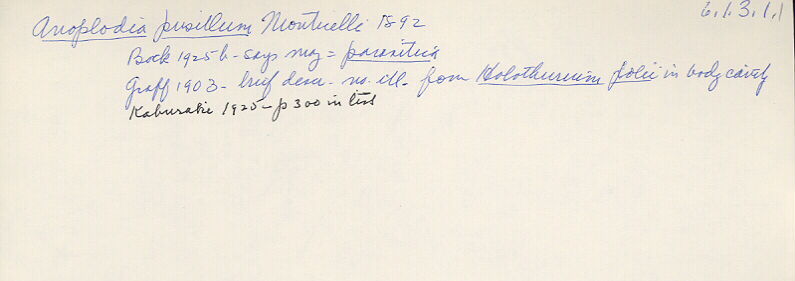 Anoplodia pusillum Monticelli 1892 6.1.3.1.1
Bock 1925b - says may = parasitica
Graff 1903 - brief descr. no ill. from Holothurium polii in body cavity
Kaburaki 1925 - p 300 in list